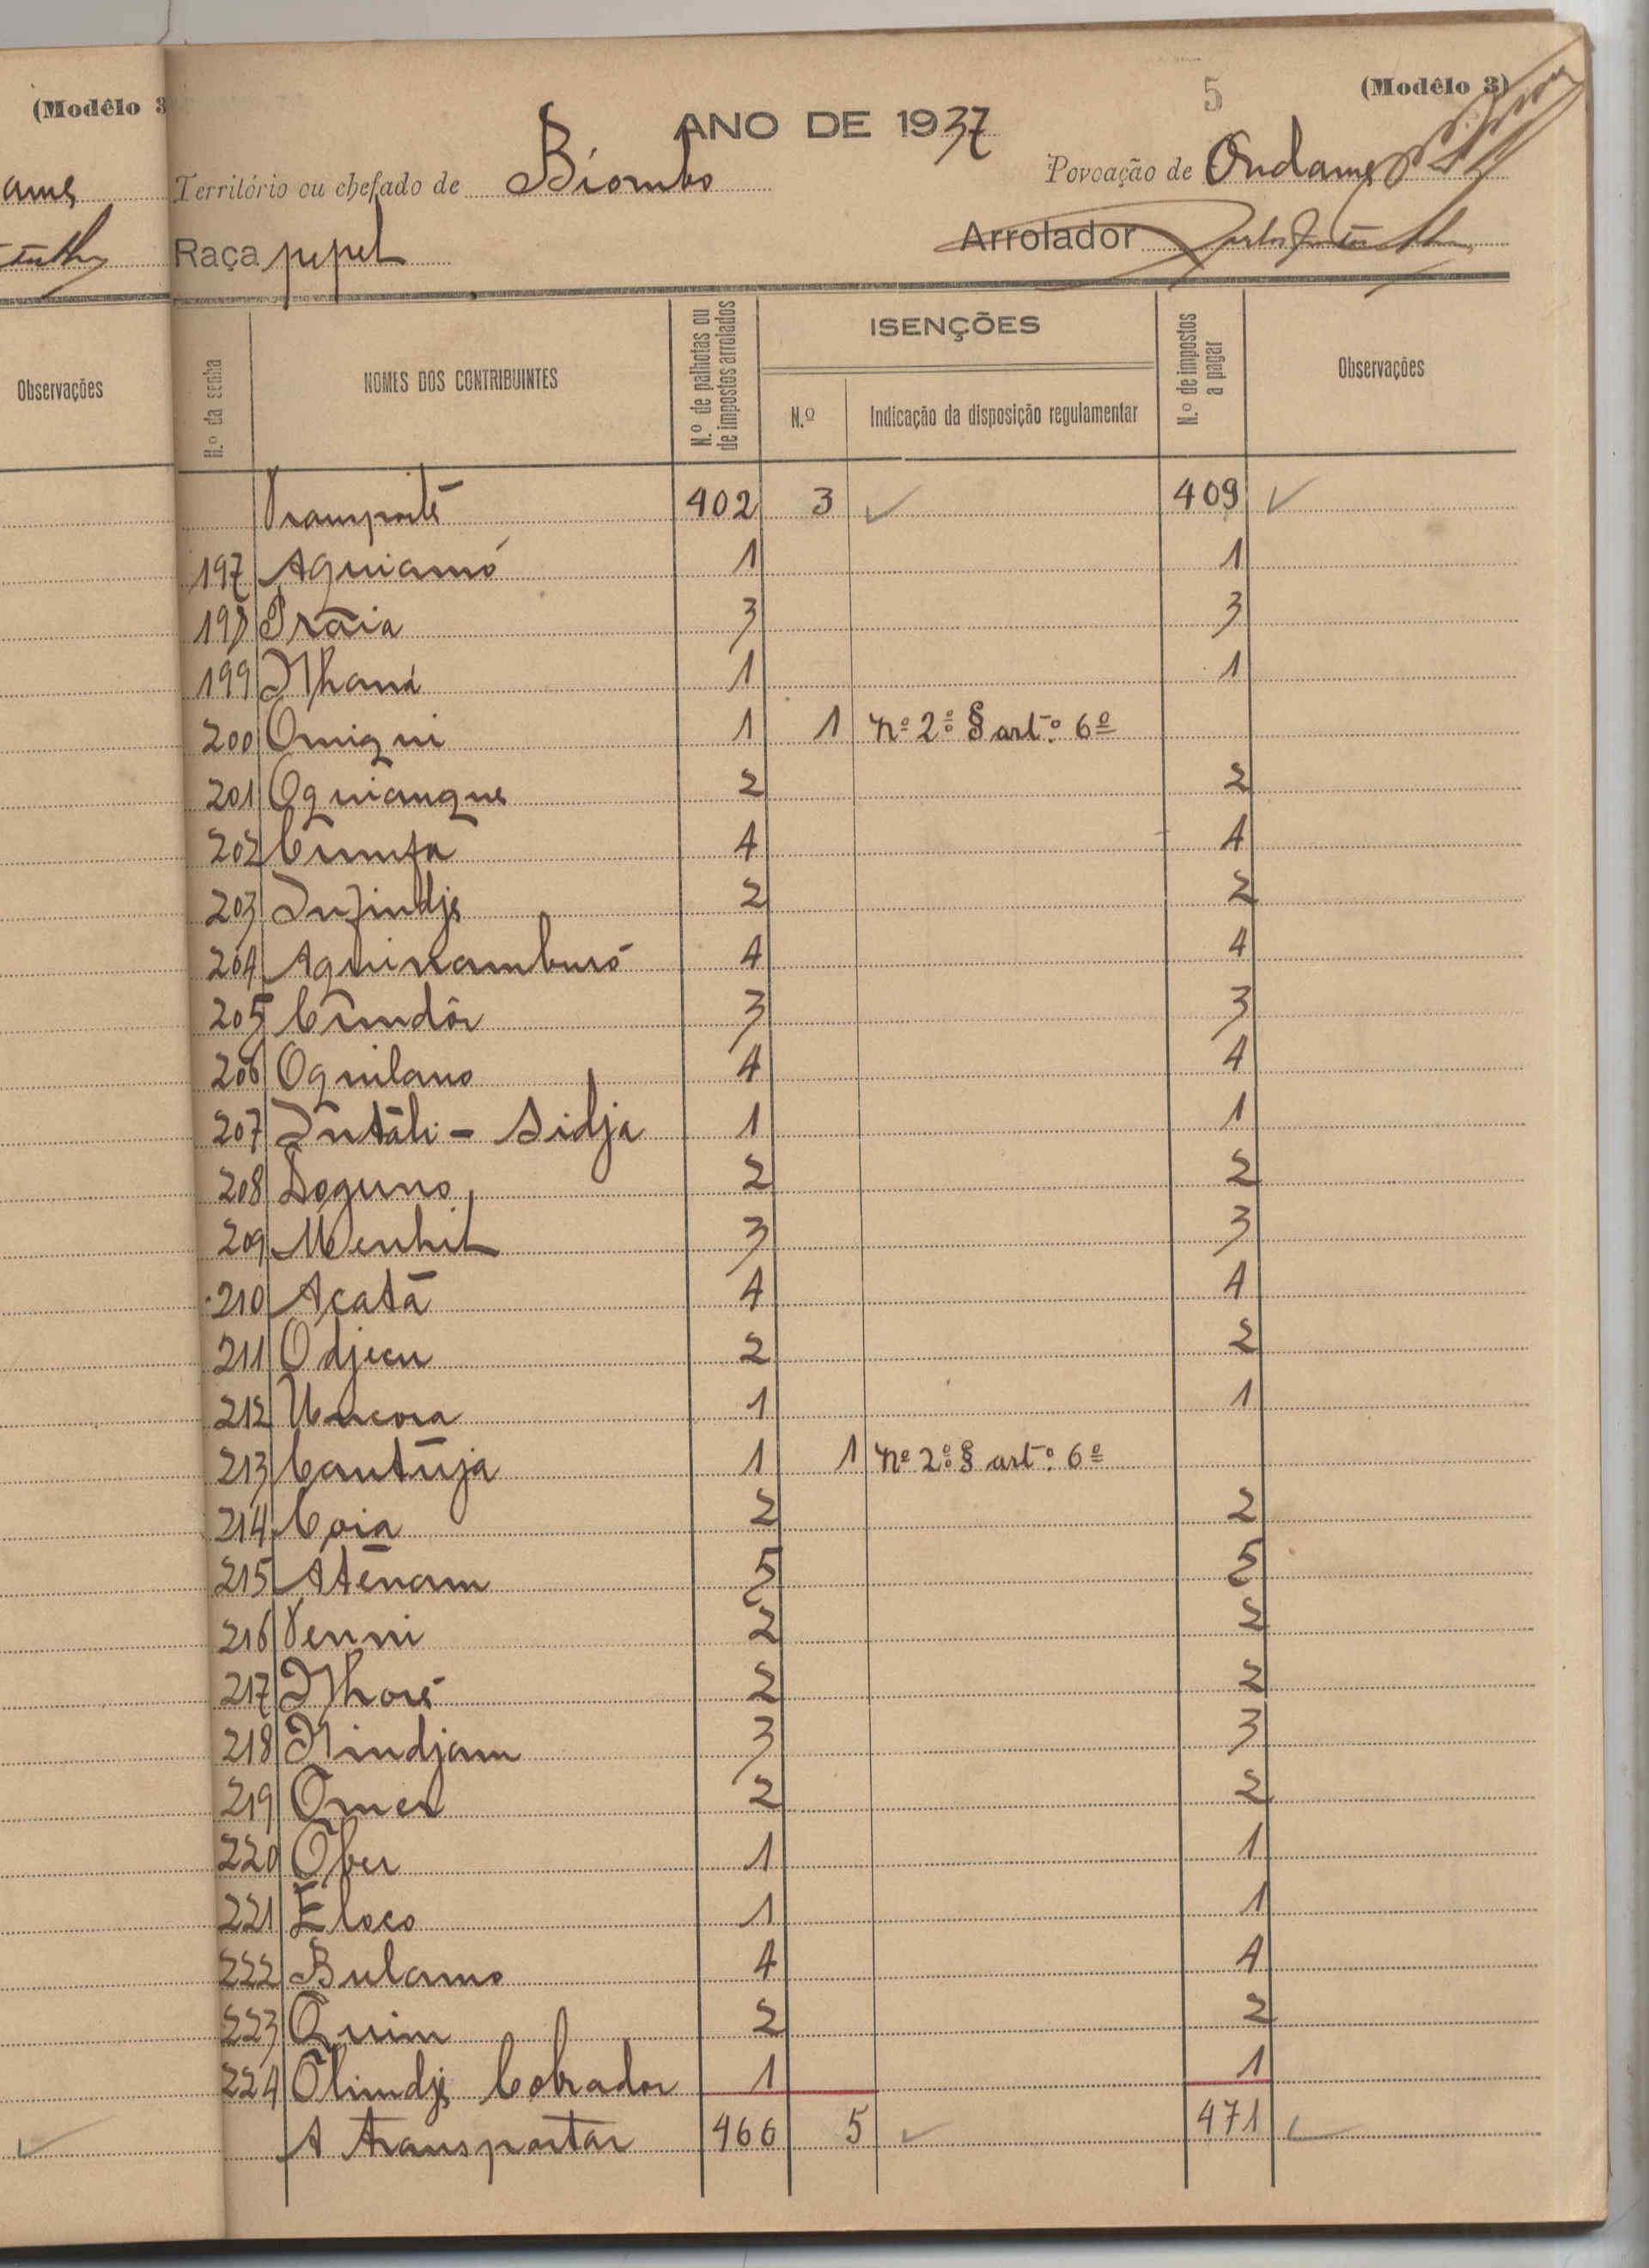 (Modêlo 3
5
(Modêlo 3)
ANO DE 1937
Território ou chefado de Biombo
Povoação de Ondame
Raça pepel
Arrolador
Observações
N.º da senha
NOMES DOS CONTRIBUINTES
N.º de palhotas ou de impostos arrolados
ISENÇÕES
N.º
Indicação da disposição regulamentar
N.º de impostos a pagar
Observações
Transporte 402 3 409
197 Aquiamó 1 1
198 Praia 3 3
199 Nhaná 1 1
200 Omiqui 1 1 nº 2º § artº 6º
201 Oquianque 2 2
202 4 4
203 2 2
204 4 4
205 Cundôr 3 3
206 Oquilano 4 4
207 Intáli - Sidja 1 1
208 Doguno 2 2
209 Menhil 3 3
210 Acatá 4 4
211 Odjecu 2 2
212 Uncora 1 1
213 Cantuja 1 1 nº 2º § artº 6º
214 Coia 2 2
215 Aténam 5 5
216 2 2
217 2 2
218 Nindjam 3 3
219 2 2
220 Ober 1 1
221 Eloco 1 1
222 Bulamo 4 4
223 Quim 2 2
224 Olindje Cobrador 1 1
A transportar 466 5 471